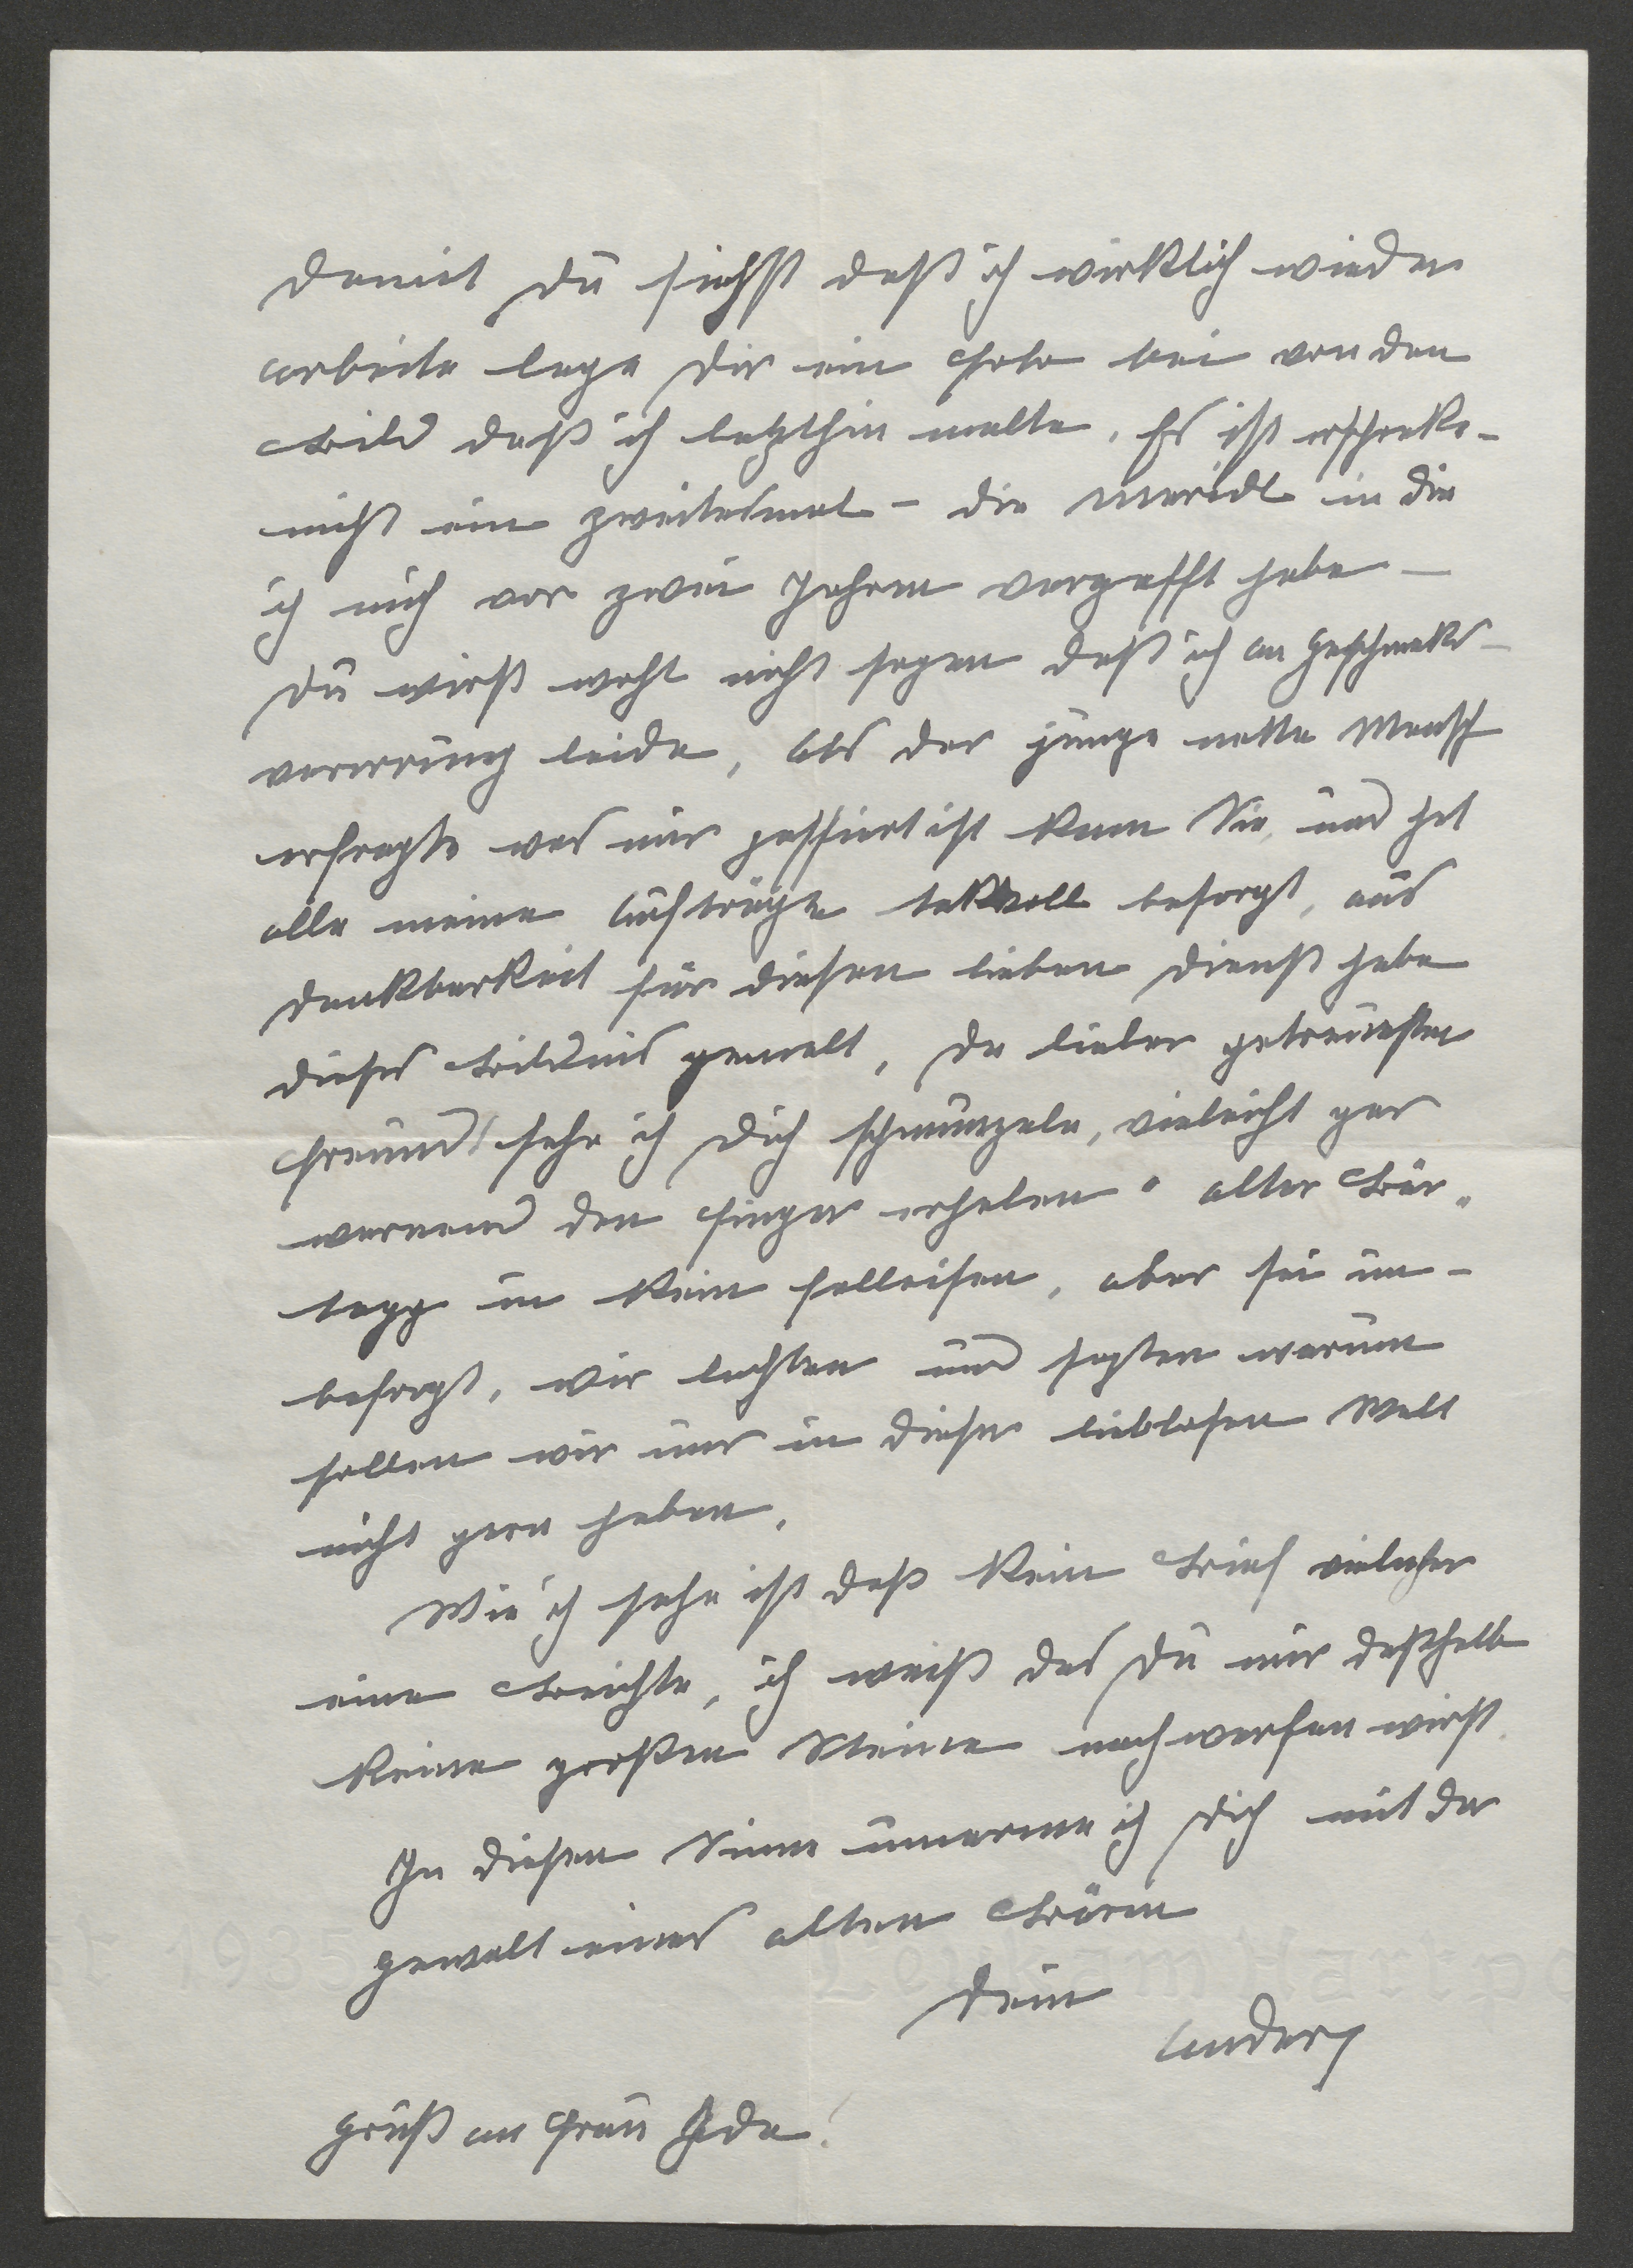 damit Du siehst daß ich wirklich wieder
arbeite lege Dir ein Foto bei von den
Bild daß ich letzthin malte. Es ist erschreke-
nicht ein zweitesmal - die Maridl in die
ich mich vor zwei Jahren vergafft habe -
Du wirst wohl nicht sagen daß ich an Geschmaks-
verirrung leide, als der junge nette Mensch
erfragte was mir passiert ist kam Sie, und hat
alle meine Aufträge taktvoll besorgt, aus
Dankbarkeit für diesen lieben Dienst habe
dieses Bildnis gemalt, Da lieber getreuester
Freund! sehe ich Dich schmunzeln, vieleicht gar
warnend den Finger erheben " alter Bär "
tapp in kein Falleisen, aber sei un-
besorgt, wir lachten und sagten warum
sollen wir uns in dieser lieblosen Welt
nicht gern haben.
Wie ich sehe ist daß kein Brief vielmehr
eine Beichte, ich weiß das Du mir desshalb
keine großen Steine nachwerfen wirst.
In diesen Sinne umarme ich Dich mit der
Gewalt eines alten Bären
Dein
Anders
Gruß an Frau Ida!